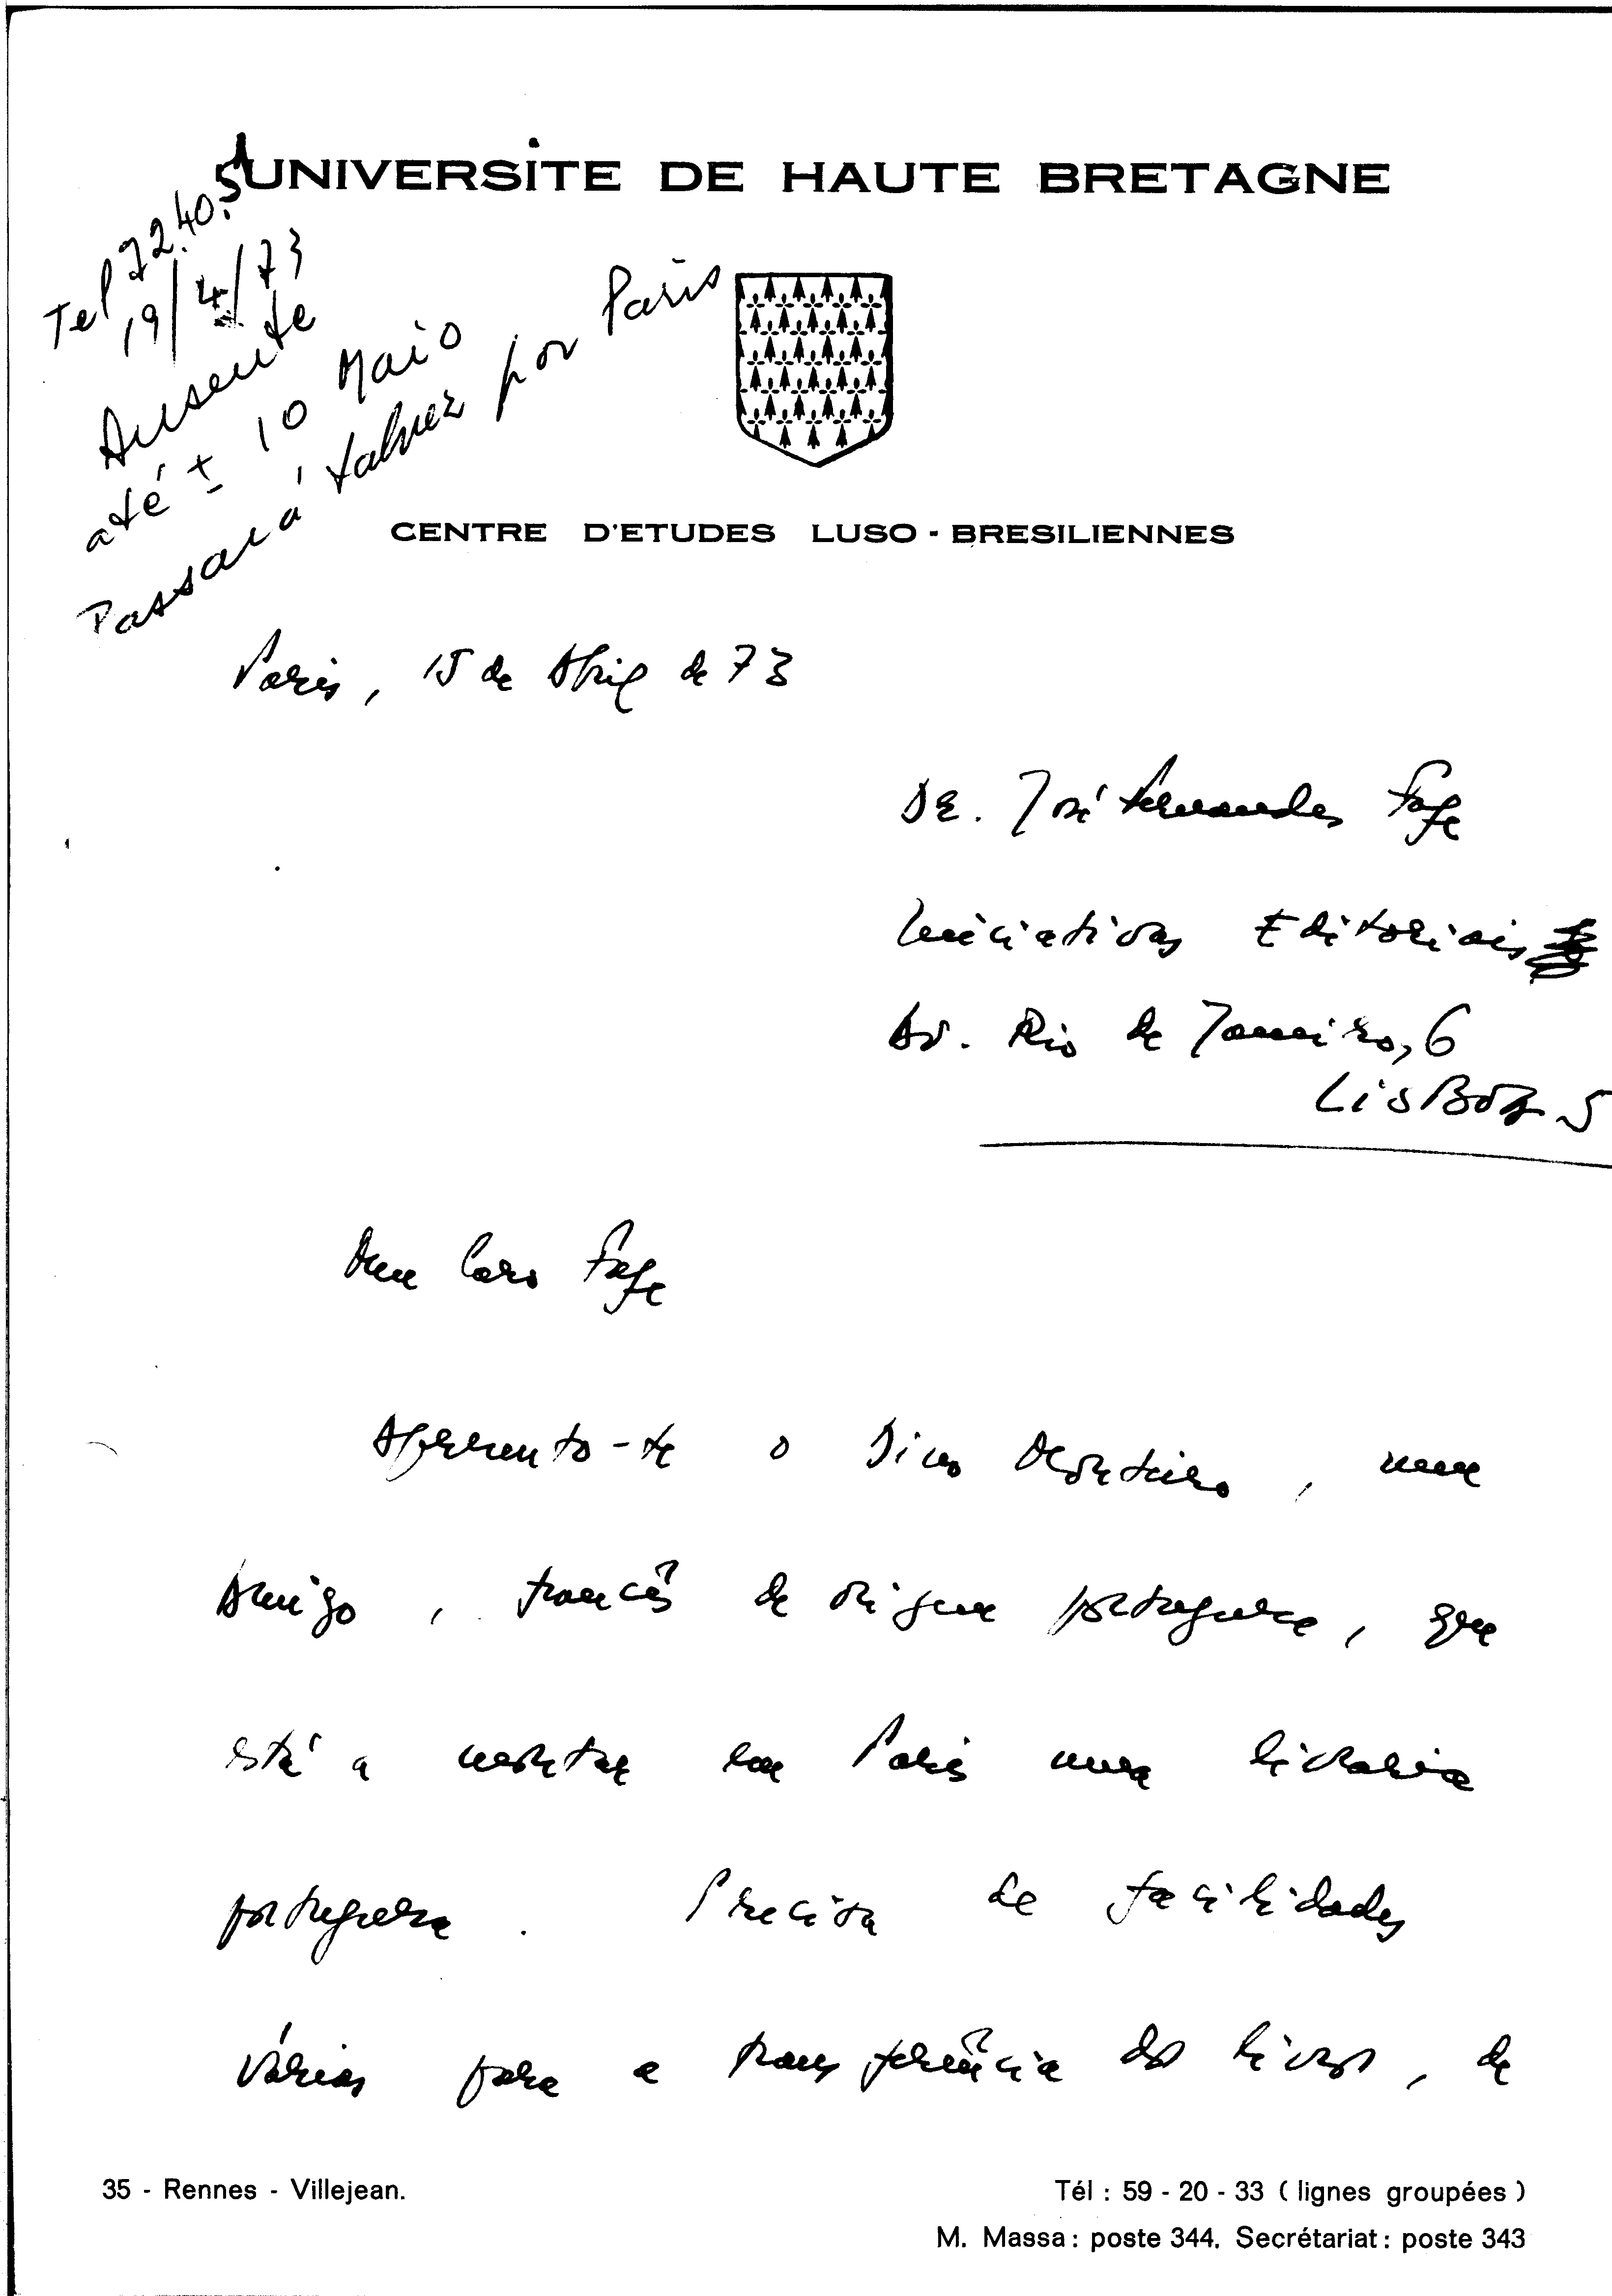 UNIVERSITE DE HAUTE BRETAGNE
Tel 72.40.51
19/4/73
Ausente
até ± 10 Maio
Passará talvez por Paris
CENTRE D'ETUDES LUSO - BRESILIENNES
Paris, 15 de Abril de 73
Dr. José Fernandes Fafe
Iniciativas Editoriais
Av. Rio de Janeiro, 6
LISBOA 5
Meu Caro Fafe
Apresento-te o Dino Monteiro, meu
Amigo, francês de origem portuguesa, que
está a montar em Paris uma livraria
portuguesa. Precisa de facilidades
várias para a transferência dos livros, de
35 - Rennes - Villejean.
Tél : 59 - 20 - 33 ( lignes groupées )
M. Massa : poste 344. Secrétariat : poste 343